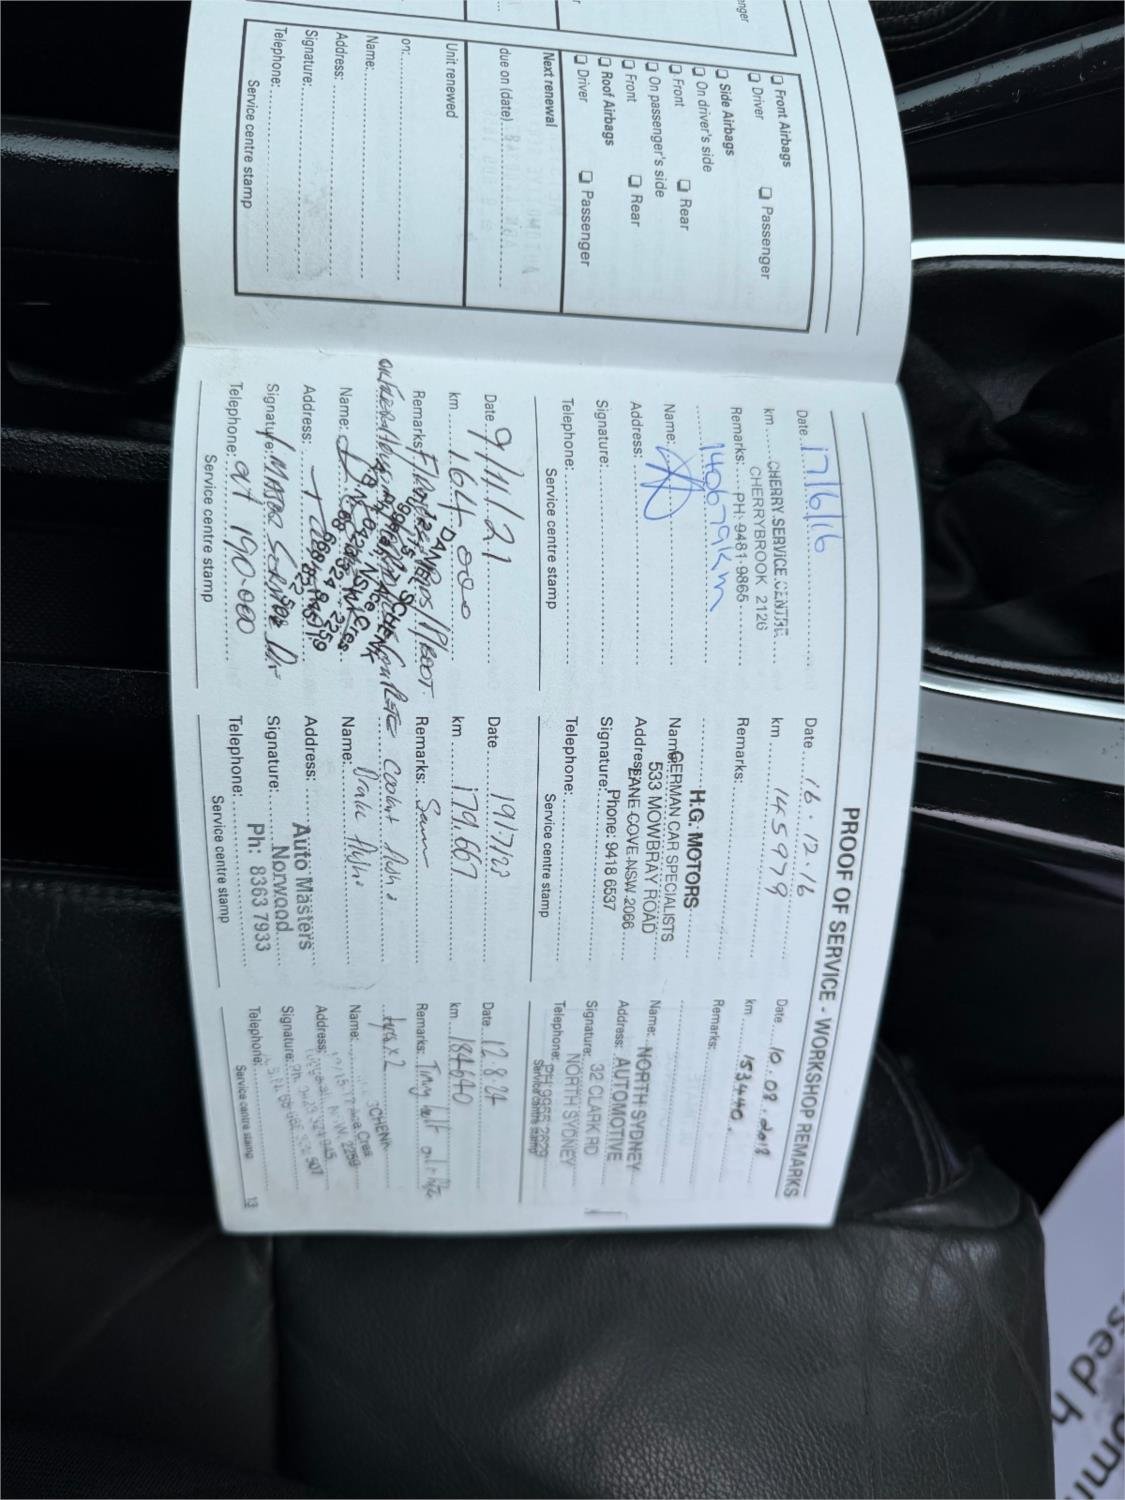 enger
❑ Front Airbags
❑ Driver ❑ Passenger
❑ Side Airbags
❑ On driver's side
❑ Front ❑ Rear
❑ On passenger's side
❑ Front ❑ Rear
❑ Roof Airbags
❑ Driver ❑ Passenger
Next renewal
due on (date)
Unit renewed
on:
Name:
Address:
Signature:
Telephone:
Service centre stamp
PROOF OF SERVICE - WORKSHOP REMARKS
Date 17/6/16
km CHERRY SERVICE CENTRE
CHERRYBROOK 2126
Remarks: PH: 9481 9865
140679km
Name:
Address:
Signature:
Telephone:
Service centre stamp
Date 16.12.16
km 145979
Remarks:
H.G. MOTORS
Name: GERMAN CAR SPECIALISTS
533 MOWBRAY ROAD
Address: LANE COVE NSW 2066
Signature: Phone: 9418 6537
Telephone:
Service centre stamp
Date 10.08.2018
km 153440.
Remarks:
Name: NORTH SYDNEY
Address: AUTOMOTIVE
Signature: 32 CLARK RD
NORTH SYDNEY
Telephone: PH 9955 2829
Service centre stamp
Date 9/11/21
km 164,000
Remarks:
Name:
Address:
Signature: MAJOR SERVICE
Telephone: at 190.000
Service centre stamp
Date 19/7/23
km 179,667
Remarks:
coolant flush
Name: Brake
Address: Auto Masters
Signature: Norwood
Telephone: Ph: 8363 7933
Service centre stamp
Date 12.8.24
km 184640
Remarks: Timing belt
x 2
Name:
Address:
Signature:
Telephone:
Service centre stamp
13